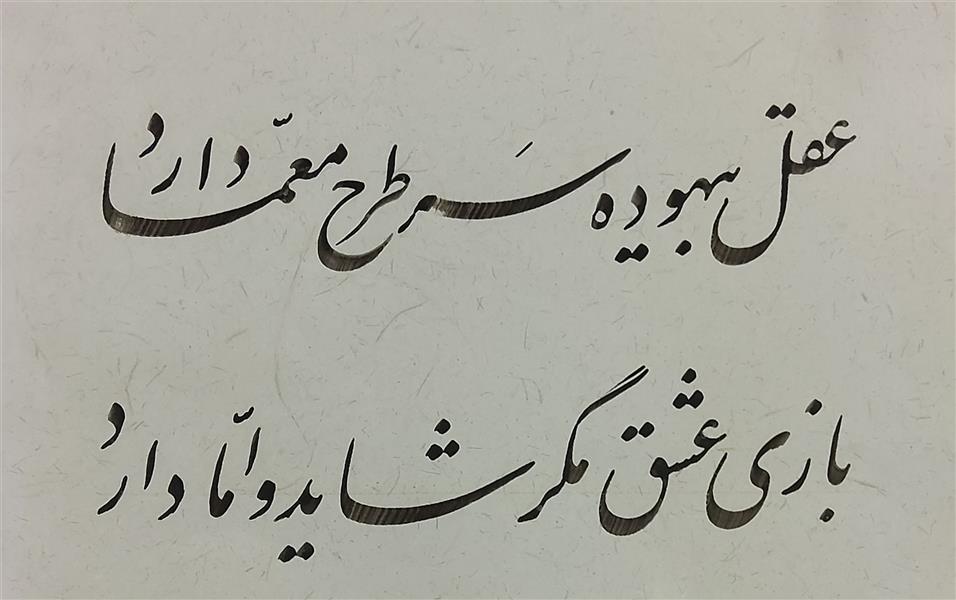 عقل بیهوده سَر طرح معمّا دارد
بازی عشق مگر شاید و امّا دارد